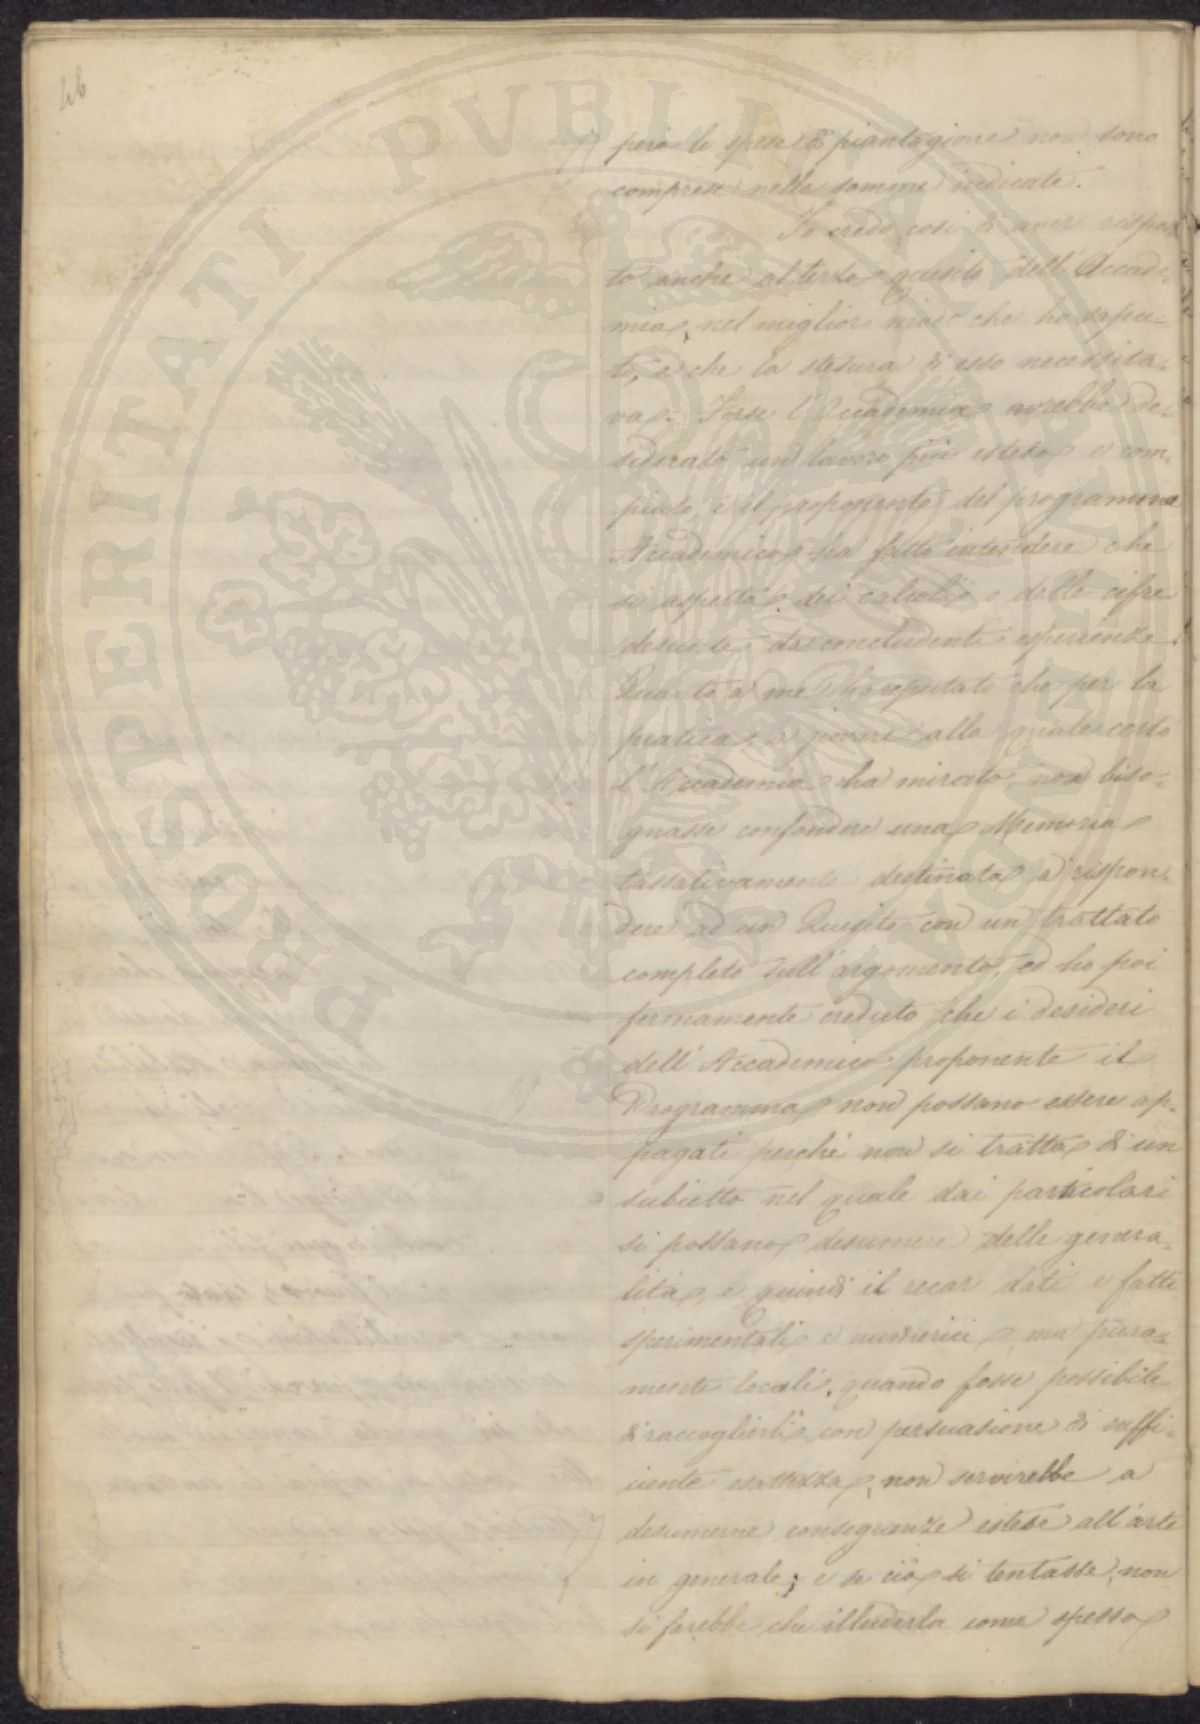 46
però le spese di piantagione non sono
comprese nella somma indicate.
Io credo così di aver rispos
to anche al terzo quesito dell'Accade-
mia, nel miglior modo che ho sapu-
to, e che la stesura di esso necessita-
va. Forse l'Accademia avrebbe de-
siderato un lavoro più esteso e com-
piuto, e il proponente del programma
Accademico ha fatto intendere che
si aspetta dei calcoli e delle cifre
desunte da concludenti esperienze.
Quanto a me ho reputato che per la
pratica a giovare alla quale certo
l'Accademia ha mirato, non biso-
gnasse confondere una Memoria
tassativamente destinata a rispon-
dere ad un Quesito con un trattato
completo sull'argomento, ed ho poi
fermamente creduto che i desideri
dell'Accademico proponente il
Programma non possano essere ap-
pagati perché non si tratta di un
subietto nel quale dai particolari
si possano desumere delle genera-
lità, e quindi il recar dati e fatti
sperimentali e numerici, ma pura-
mente locali, quando fosse possibile
di raccoglierli con persuasione di suffi-
ciente esattezza, non servirebbe a
desumerne conseguenze estese all'arte
in generale; e se ciò si tentasse, non
si farebbe che illuderla come spesso
PROSPERITATI PUBLICAE AUGENDAE